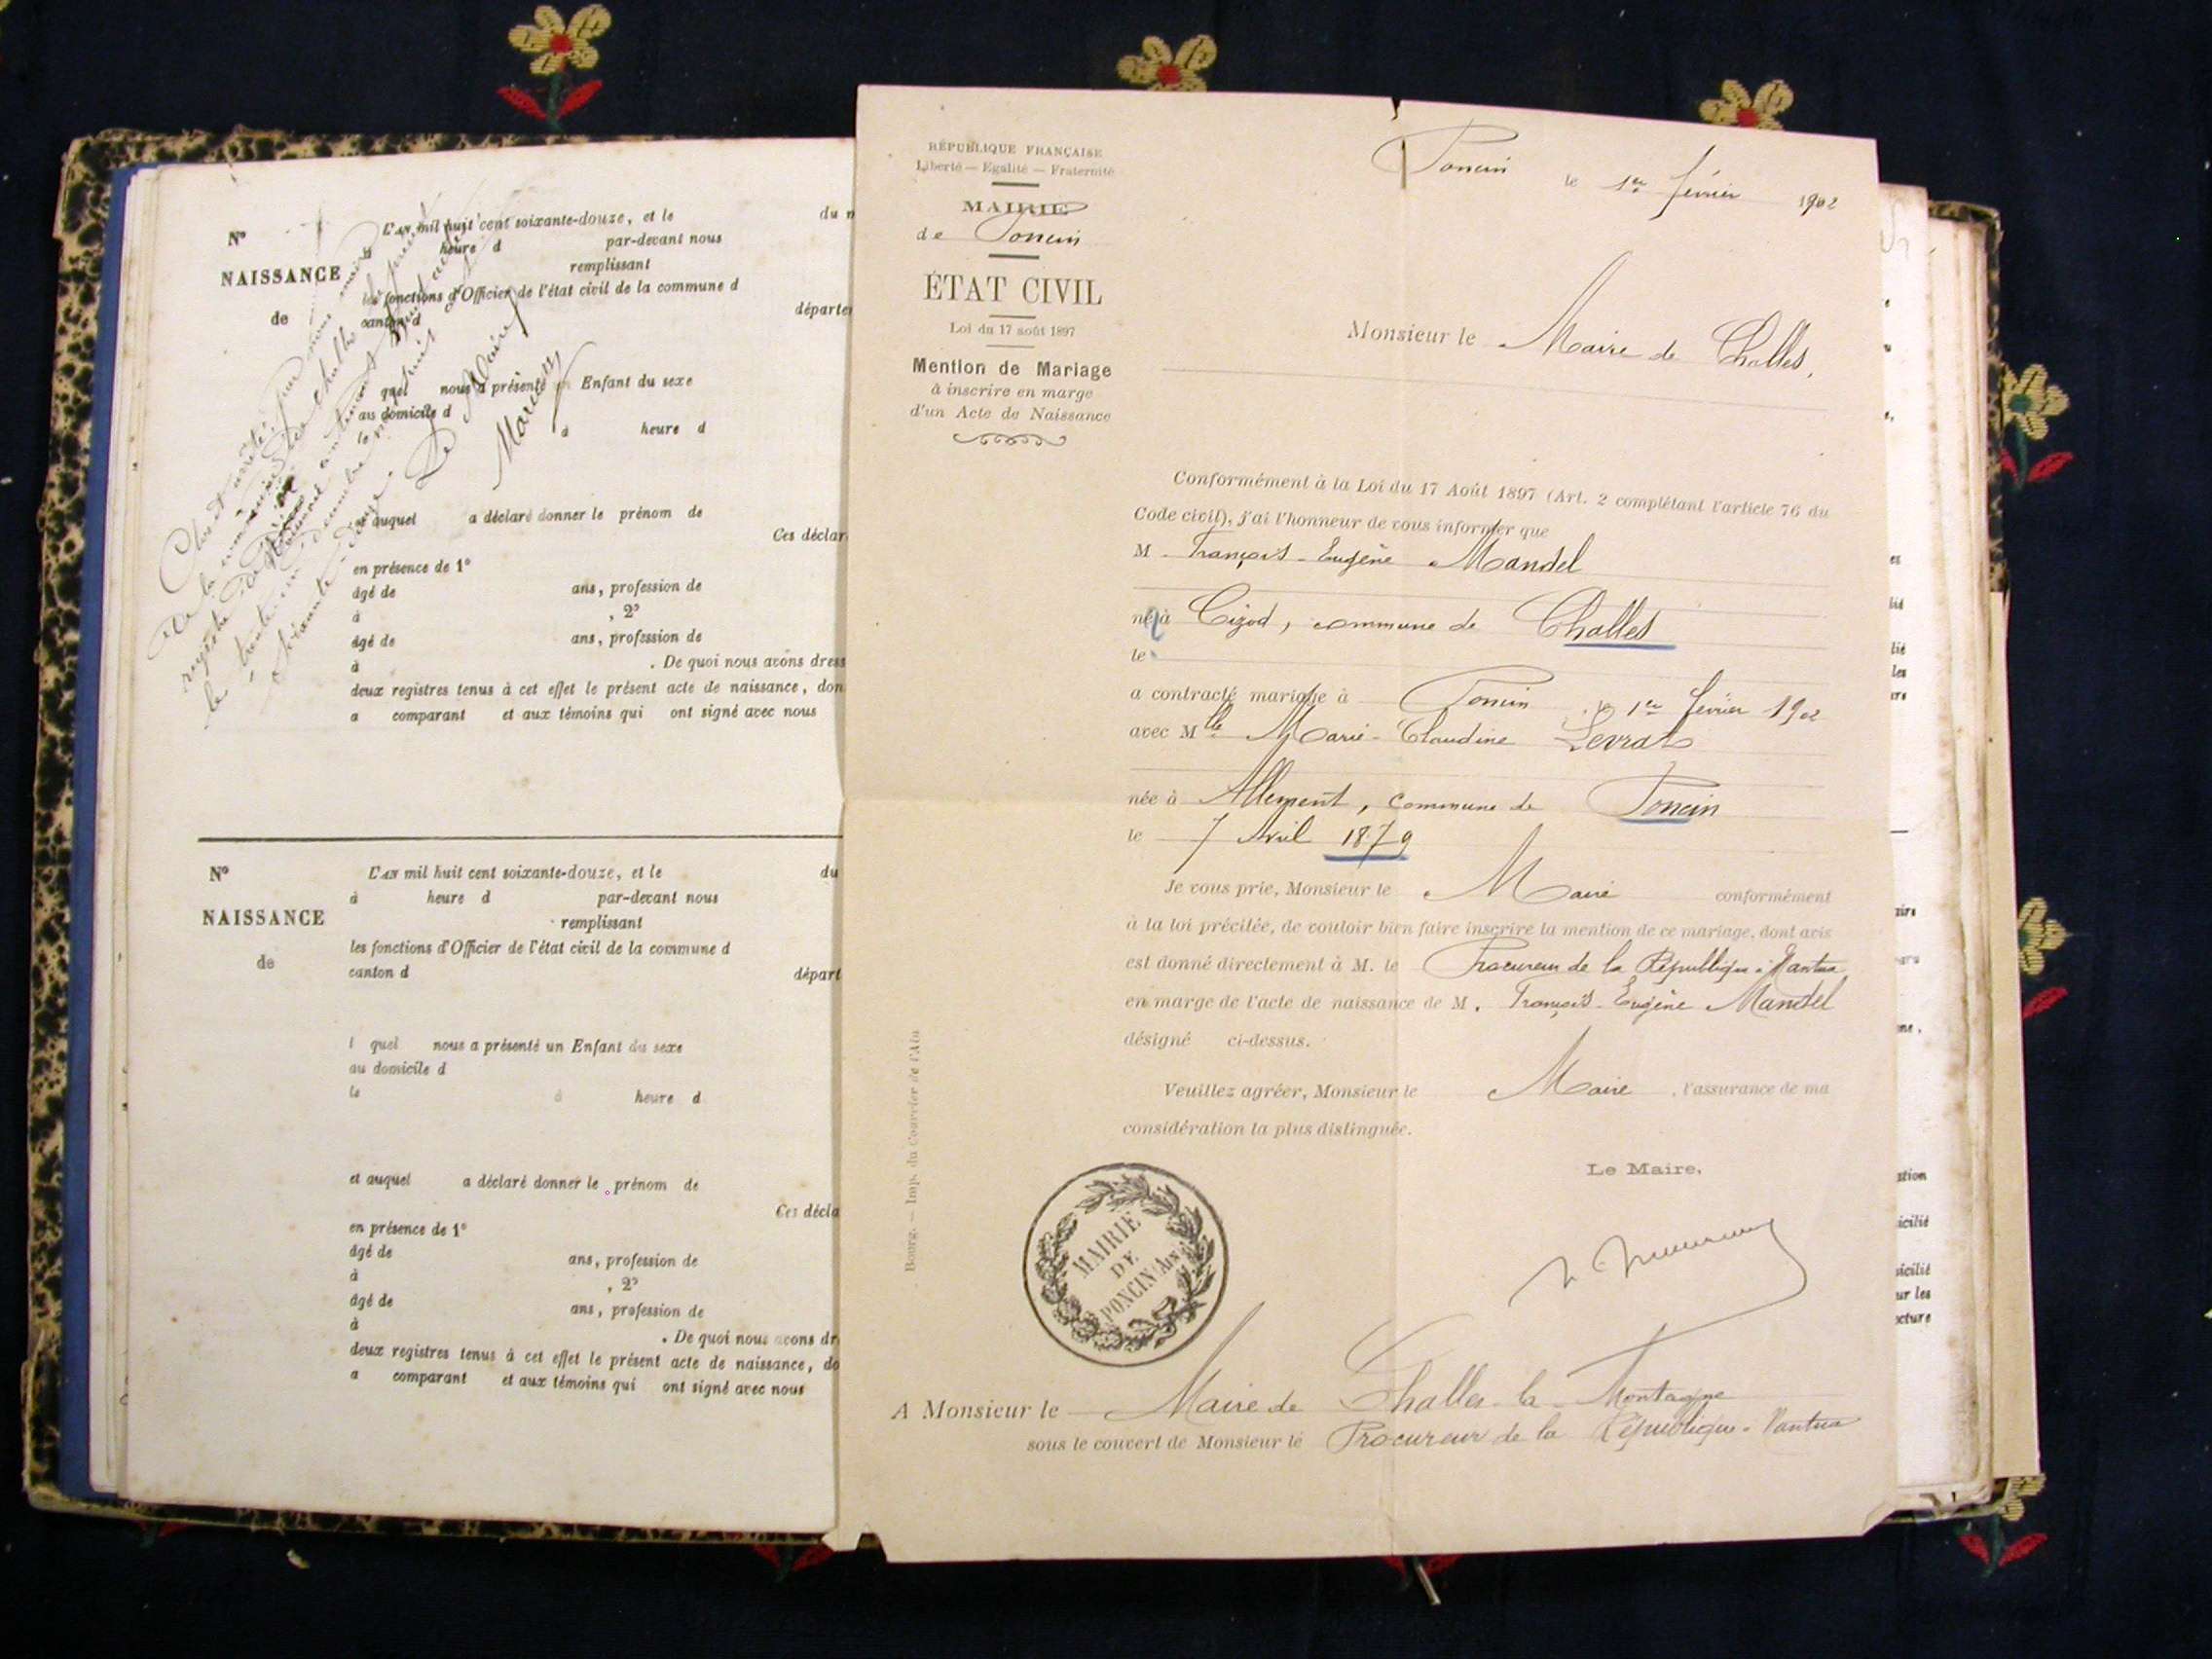 Nº
NAISSANCE
de
L'AN mil huit cent soixante-douze, et le du
heure d par-devant nous
remplissant
les fonctions d'Officier de l'état civil de la commune d
canton d départe
quel nous a présenté un Enfant du sexe
au domicile d
le à heure d
et auquel a déclaré donner le prénom de
Ces déclar
en présence de 1º
âgé de ans, profession de
à , 2º
âgé de ans, profession de
à . De quoi nous avons dress
deux registres tenus à cet effet le présent acte de naissance, don
a comparant et aux témoins qui ont signé avec nous
Clos et arrêté, par nous maire
de la commune de Challes le
registre de
le trente un décembre mil huit
soixante douze.
Le Maire
Nº
NAISSANCE
de
L'AN mil huit cent soixante-douze, et le du
à heure d par-devant nous
remplissant
les fonctions d'Officier de l'état civil de la commune d
canton d départ
l quel nous a présenté un Enfant du sexe
au domicile d
le à heure d
et auquel a déclaré donner le prénom de
Ces décla
en présence de 1º
âgé de ans, profession de
à , 2º
âgé de ans, profession de
à . De quoi nous avons dr
deux registres tenus à cet effet le présent acte de naissance, do
a comparant et aux témoins qui ont signé avec nous
RÉPUBLIQUE FRANÇAISE
Liberté — Egalité — Fraternité
MAIRIE
de Poncin
ÉTAT CIVIL
Loi du 17 août 1897
Mention de Mariage
à inscrire en marge
d'un Acte de Naissance
Poncin le 1er février 1902
Monsieur le Maire de Challes,
Conformément à la Loi du 17 Août 1897 (Art. 2 complétant l'article 76 du
Code civil), j'ai l'honneur de vous informer que
M. François-Eugène Mandel
né à Cizod, commune de Challes
le
a contracté mariage à Poncin le 1er février 1902
avec Mlle Marie-Claudine Levrat
née à Allement, commune de Poncin
le 7 Avril 1879
Je vous prie, Monsieur le Maire conformément
à la loi précitée, de vouloir bien faire inscrire la mention de ce mariage, dont avis
est donné directement à M. le Procureur de la République à Nantua
en marge de l'acte de naissance de M. François-Eugène Mandel
désigné ci-dessus.
Veuillez agréer, Monsieur le Maire, l'assurance de ma
considération la plus distinguée.
Le Maire,
MAIRIE
DE
PONCIN (AIN)
A Monsieur le Maire de Challes-la-Montagne
sous le couvert de Monsieur le Procureur de la République à Nantua
Bourg. — Imp. du Courrier de l'Ain